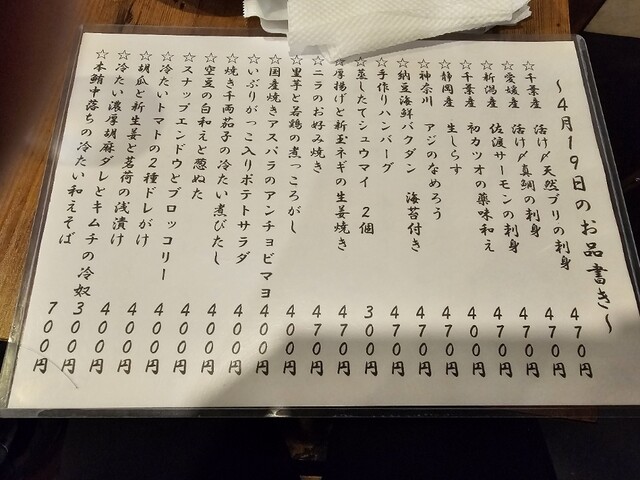 ～4月19日のお品書き～
☆千葉産 活け〆天然ブリの刺身 470円
☆愛媛産 活け〆真鯛の刺身 470円
☆新潟産 佐渡サーモンの刺身 470円
☆千葉産 初カツオの薬味和え 470円
☆静岡産 生しらす 400円
☆神奈川 アジのなめろう 470円
☆納豆海鮮バクダン 海苔付き 470円
☆手作りハンバーグ 470円
☆蒸したてシュウマイ 2個 300円
厚揚げと新玉ネギの生姜焼き 470円
☆ニラのお好み焼き 470円
☆里芋と若鶏の煮っころがし 400円
☆国産焼きアスパラのアンチョビマヨ 400円
☆いぶりがっこ入りポテトサラダ 400円
☆焼き千両茄子の冷たい煮びたし 400円
☆空豆の白和えと葱ぬた 400円
☆スナップエンドウとブロッコリー 400円
☆冷たいトマトの2種ドレがけ 400円
☆胡瓜と新生姜と茗荷の浅漬け 400円
☆冷たい濃厚胡麻ダレとキムチの冷奴 300円
☆本鮪中落ちの冷たい和えそば 700円